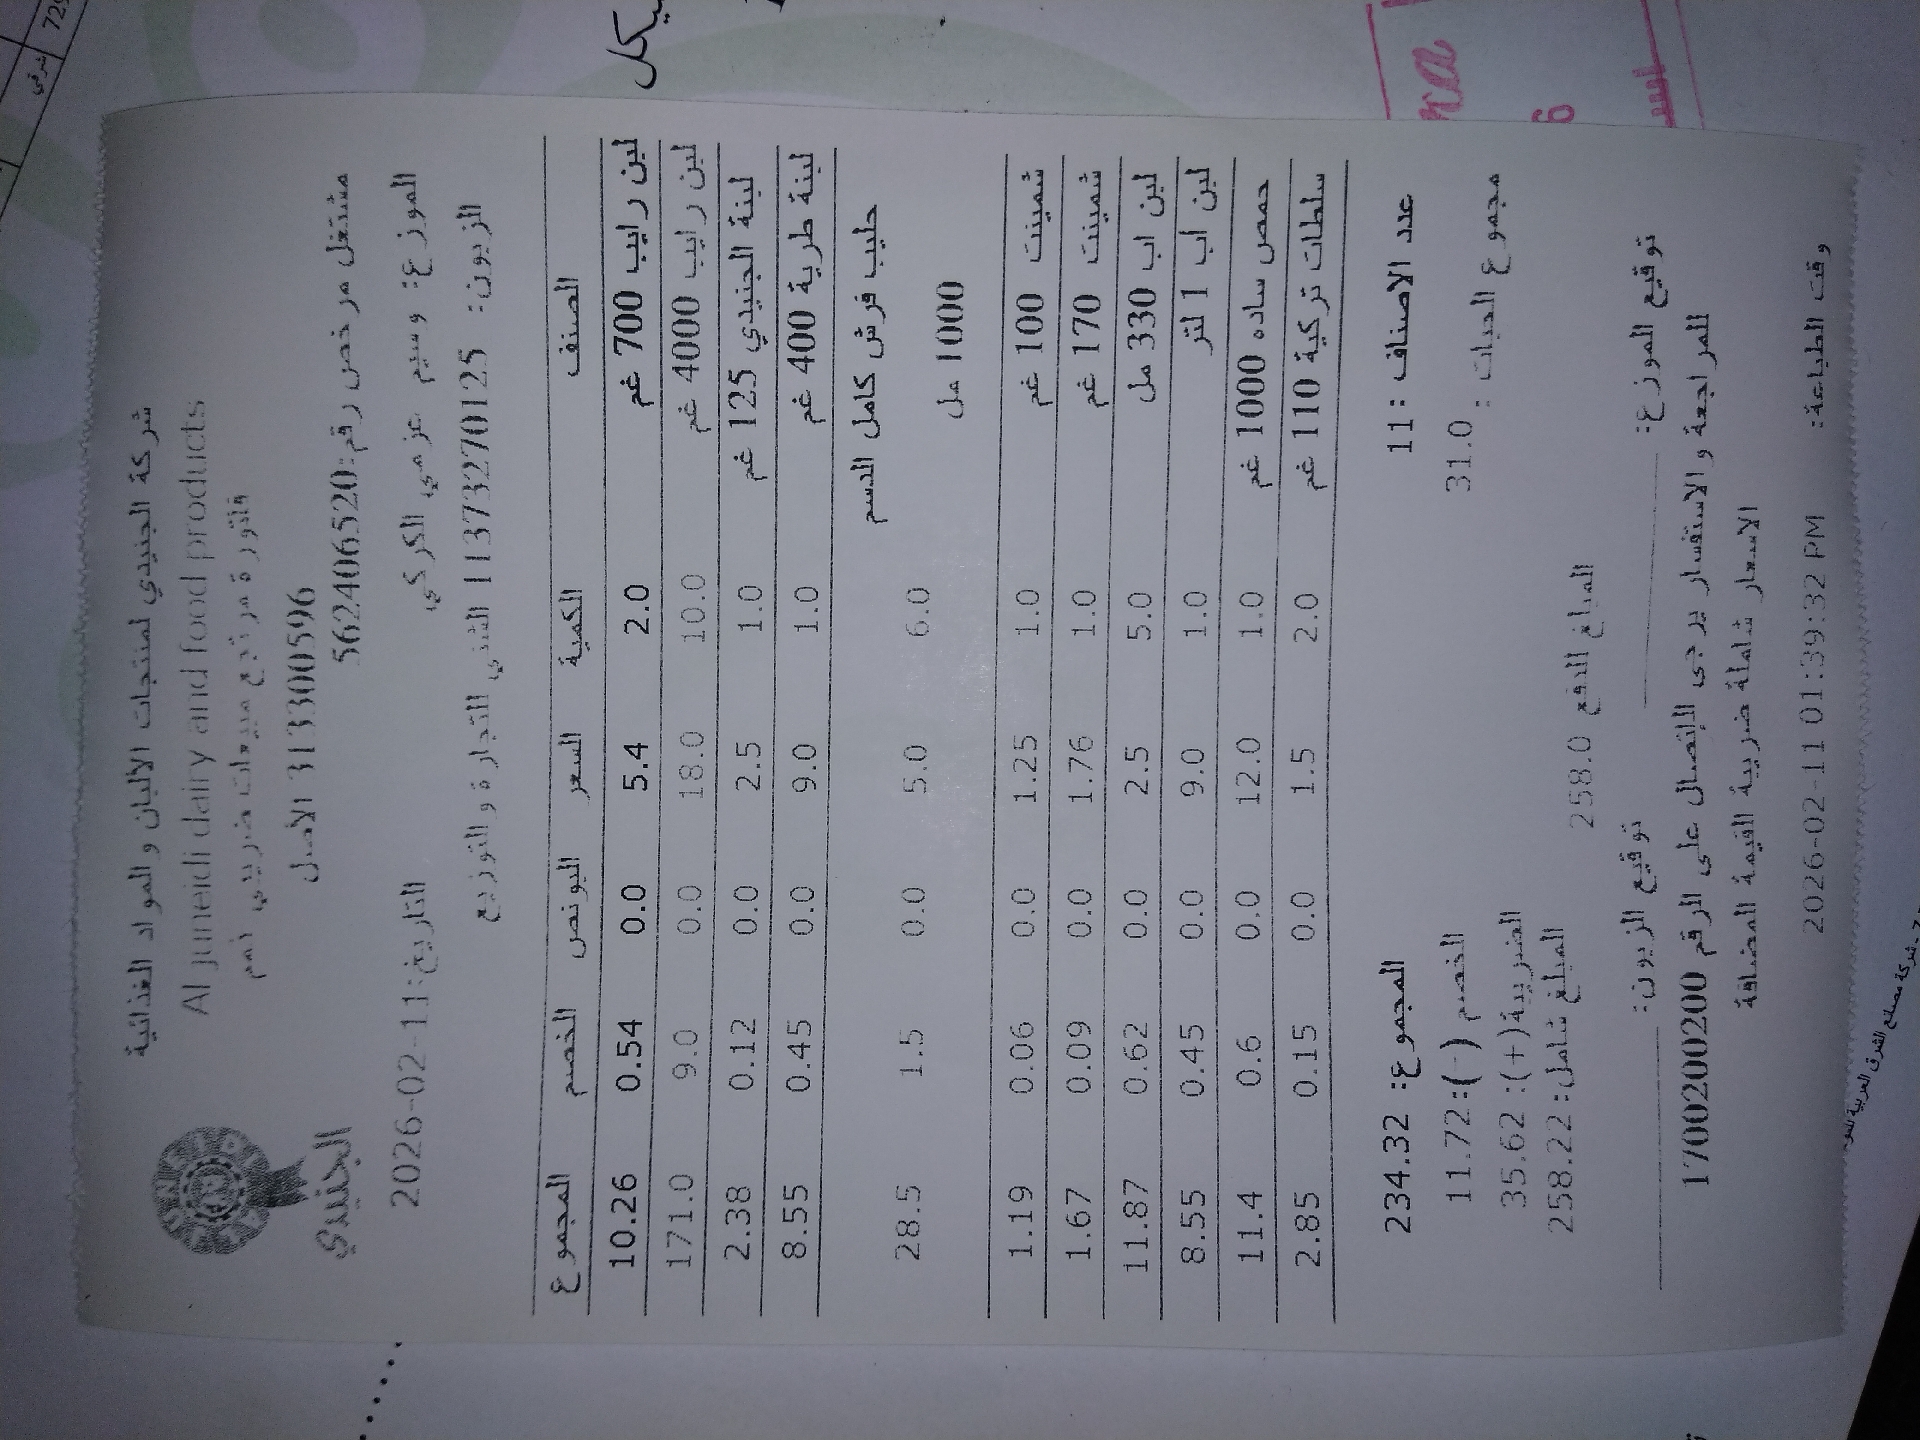 شركة الجنيدي لمنتجات الالبان والمواد الغذائية
Al juneidi dairy and food products
فاتورة مرتجع مبيعات ضريبي نهم
313300596 الاصل
مشتغل مرخص رقم:562406520
الجنيدي
الموزع: وسيم عزمي الكركي
التاريخ:2026-02-11
الزبون: 11373270125 المثنى للتجارة والتوزيع
الصنف الكمية السعر البونص الخصم المجموع
لبن رايب 700 غم 2.0 5.4 0.0 0.54 10.26
لبن رايب 4000 غم 10.0 18.0 0.0 9.0 171.0
لبنة الجنيدي 125 غم 1.0 2.5 0.0 0.12 2.38
لبنة طرية 400 غم 1.0 9.0 0.0 0.45 8.55
حليب فرش كامل الدسم
1000 مل 6.0 5.0 0.0 1.5 28.5
شمينت 100 غم 1.0 1.25 0.0 0.06 1.19
شمينت 170 غم 1.0 1.76 0.0 0.09 1.67
لبن اب 330 مل 5.0 2.5 0.0 0.62 11.87
لبن اب 1 لتر 1.0 9.0 0.0 0.45 8.55
حمص ساده 1000 غم 1.0 12.0 0.0 0.6 11.4
سلطات تركية 110 غم 2.0 1.5 0.0 0.15 2.85
عدد الاصناف : 11 المجموع: 234.32
مجموع الحبات : 31.0 الخصم (-):11.72
الضريبة(+): 35.62
المبلغ شامل: 258.22
المبلغ للدفع 258.0
توقيع الموزع: توقيع الزبون:
للمراجعة والاستفسار يرجى الإتصال على الرقم 1700200200
الاسعار شاملة ضريبة القيمة المضافة
وقت الطباعة: 2026-02-11 01:39:32 PM
شرقي
729
يكل